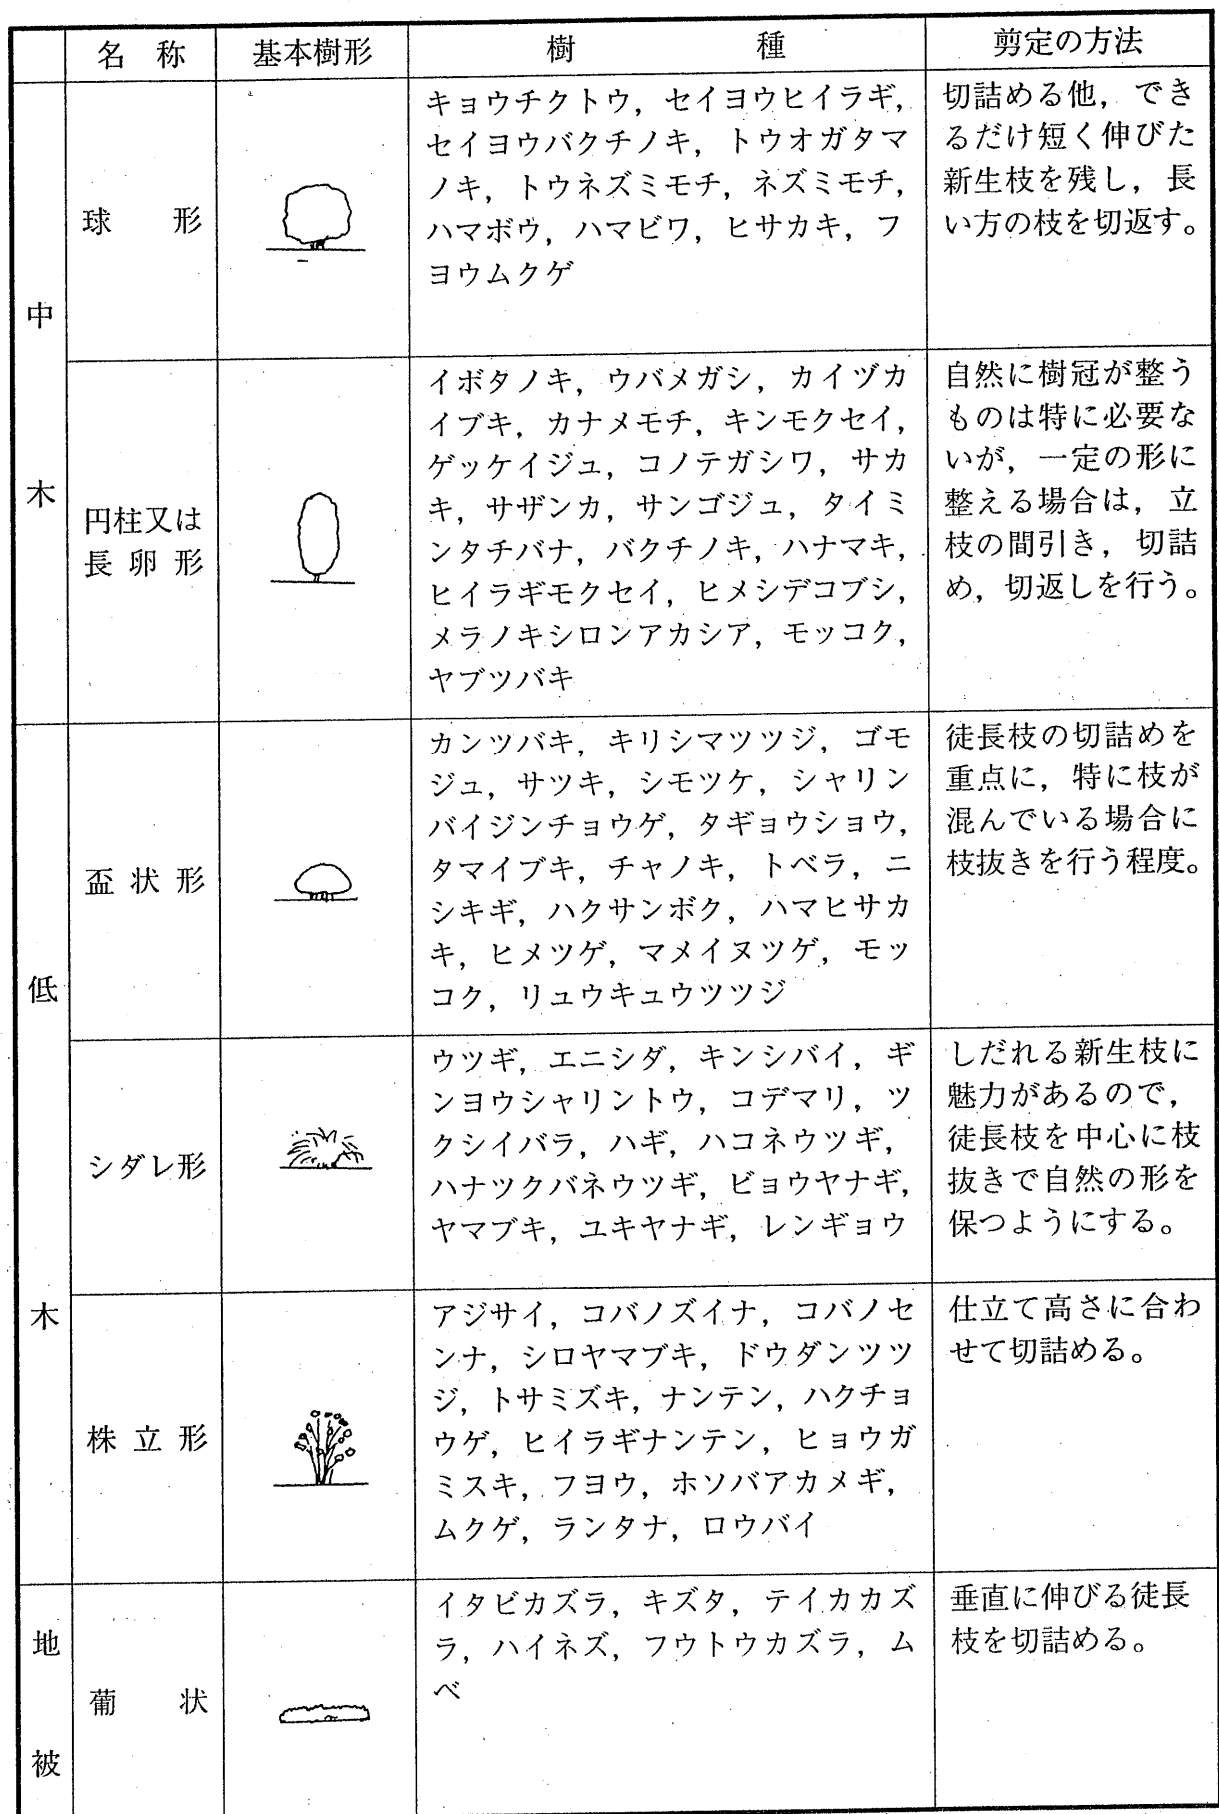 名　称　基本樹形　樹　種　剪定の方法
中木
球　形
キョウチクトウ，セイヨウヒイラギ，
セイヨウバクチノキ，トウオガタマ
ノキ，トウネズミモチ，ネズミモチ，
ハマボウ，ハマビワ，ヒサカキ，フ
ヨウムクゲ
切詰める他，でき
るだけ短く伸びた
新生枝を残し，長
い方の枝を切返す。
円柱又は
長卵形
イボタノキ，ウバメガシ，カイヅカ
イブキ，カナメモチ，キンモクセイ，
ゲッケイジュ，コノテガシワ，サカ
キ，サザンカ，サンゴジュ，タイミ
ンタチバナ，バクチノキ，ハナマキ，
ヒイラギモクセイ，ヒメシデコブシ，
メラノキシロンアカシア，モッコク，
ヤブツバキ
自然に樹冠が整う
ものは特に必要な
いが，一定の形に
整える場合は，立
枝の間引き，切詰
め，切返しを行う。
低木
盃状形
カンツバキ，キリシマツツジ，ゴモ
ジュ，サツキ，シモツケ，シャリン
バイジンチョウゲ，タギョウショウ，
タマイブキ，チャノキ，トベラ，ニ
シキギ，ハクサンボク，ハマヒサカ
キ，ヒメツゲ，マメイヌツゲ，モッ
コク，リュウキュウツツジ
徒長枝の切詰めを
重点に，特に枝が
混んでいる場合に
枝抜きを行う程度。
シダレ形
ウツギ，エニシダ，キンシバイ，ギ
ンヨウシャリントウ，コデマリ，ツ
クシイバラ，ハギ，ハコネウツギ，
ハナツクバネウツギ，ビョウヤナギ，
ヤマブキ，ユキヤナギ，レンギョウ
しだれる新生枝に
魅力があるので，
徒長枝を中心に枝
抜きで自然の形を
保つようにする。
株立形
アジサイ，コバノズイナ，コバノセ
ンナ，シロヤマブキ，ドウダンツツ
ジ，トサミズキ，ナンテン，ハクチョ
ウゲ，ヒイラギナンテン，ヒョウガ
ミスキ，フヨウ，ホソバアカメギ，
ムクゲ，ランタナ，ロウバイ
仕立て高さに合わ
せて切詰める。
地被
葡　状
イタビカズラ，キズタ，テイカカズ
ラ，ハイネズ，フウトウカズラ，ム
ベ
垂直に伸びる徒長
枝を切詰める。